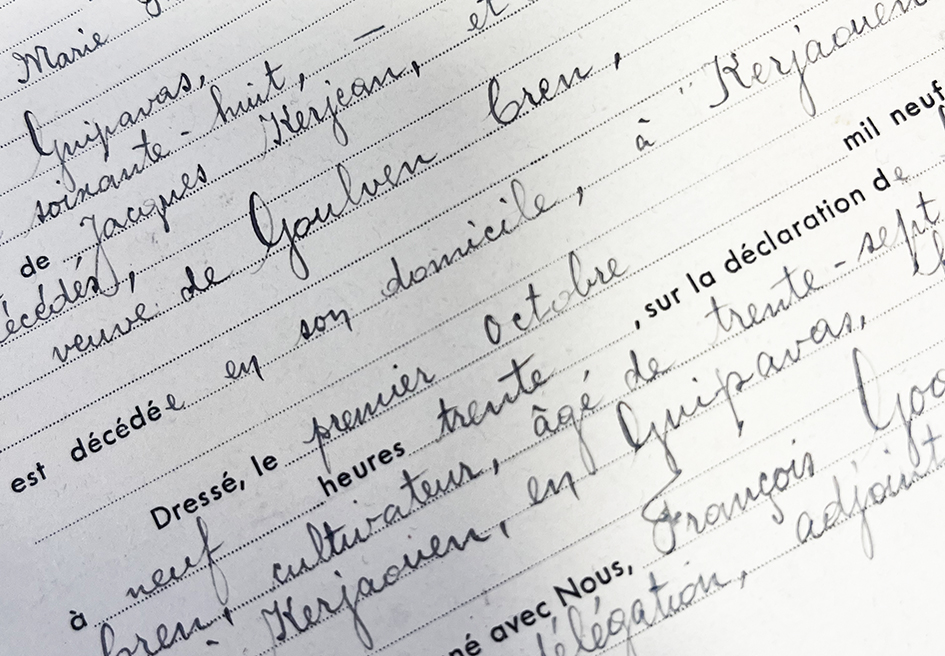 Marie
Guipavas,
soixante-huit, — et
de Jacques Kerjean,
décédés, veuve de Goulven Cren,
est décédée en son domicile, à "Kerjaouen
Dressé, le premier Octobre mil neuf
à neuf heures trente, sur la déclaration de
Cren, cultivateur, âgé de trente-sept
Kerjaouen, en Guipavas,
né avec Nous, François
délégation, adjoint